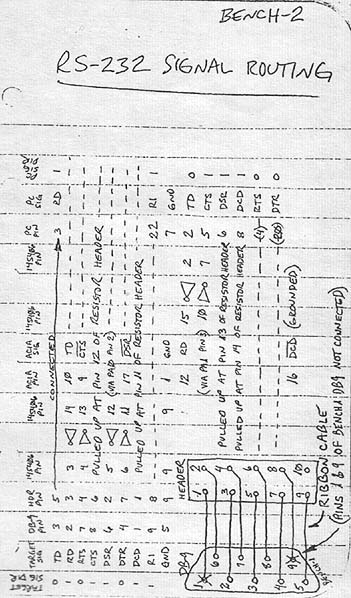 BENCH-2
RS-232 SIGNAL ROUTING
TARGET SIG DIR TARGET SIG DB9 PIN HDR PIN 145406 PIN 145406 PIN ACIA PIN ACIA SIG 145406 PIN 145406 PIN PC PIN PC SIG
TD 3 5 CONNECTED 3
RD 2 3 3 14 10 TD
RTS 7 4 4 13 9 CTS
CTS 8 6 PULLED UP AT PIN 12 OF RESISTOR HEADER
DSR 6 2 5 12
DTR 4 7 6 11 11 DSR
DCD 1 1 PULLED UP AT PIN 11 OF RESISTOR HEADER
RI 9 8 22 RI 1
GND 5 9 9 9 1 GND 7 GND
12 RD 15 2 2 TD 0
10 7 5 CTS 1
PULLED UP AT PIN 13 OF RESISTOR HEADER 6 DSR 1
PULLED UP AT PIN 14 OF RESISTOR HEADER 8 DCD 1
(4) RTS 0
DTR 0
16 DCD (GROUNDED)
HEADER
DB9
RIBBON CABLE
(PINS 1 & 9 OF BENCH DB9 NOT CONNECTED)